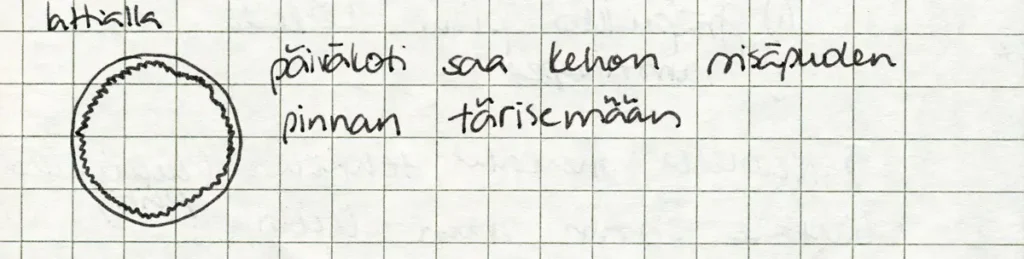 lattialla
päiväkoti saa kehon sisäpuolen
pinnan tärisemään